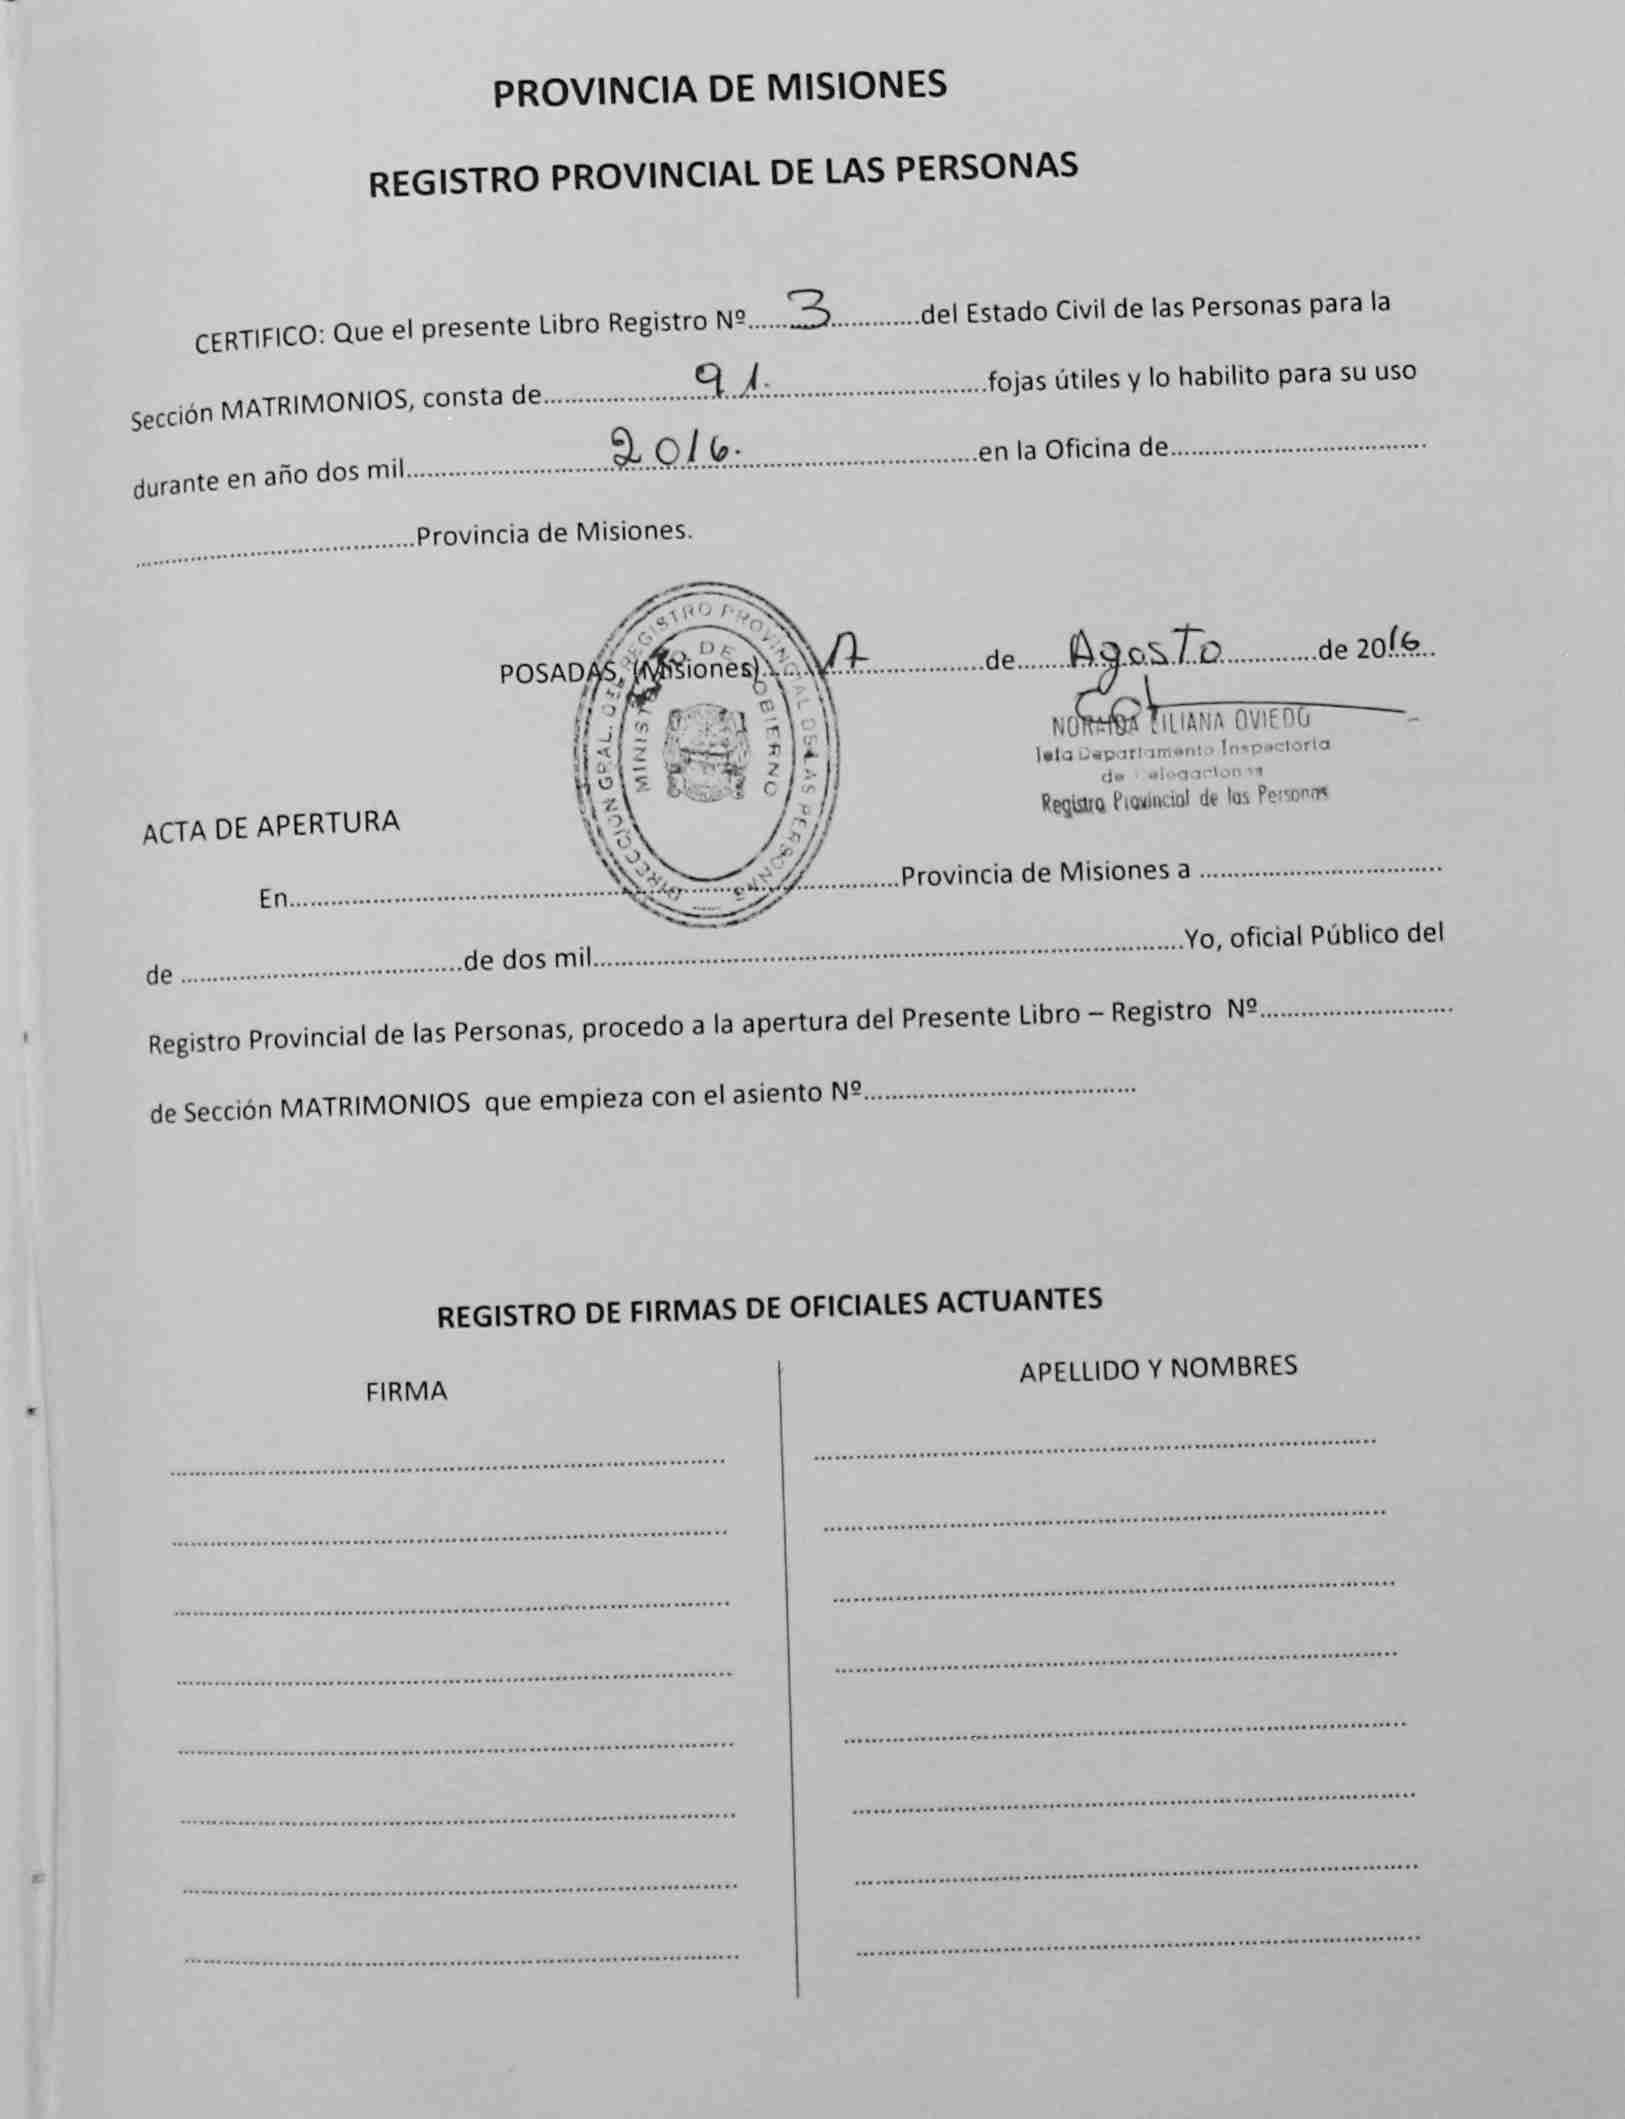 PROVINCIA DE MISIONES
REGISTRO PROVINCIAL DE LAS PERSONAS
CERTIFICO: Que el presente Libro Registro Nº......3.............del Estado Civil de las Personas para la
Sección MATRIMONIOS, consta de......................91...............................fojas útiles y lo habilito para su uso
durante en año dos mil..............................2016...................................en la Oficina de.....................................
........................................Provincia de Misiones.
POSADAS, (Misiones)..........................de.......Agosto..............de 2016......
NORAIDA LILIANA OVIEDO
Departamento Inspectoria
de
Registro Provincial de las Personas
DIRECCION GRAL. DEL REGISTRO PROVINCIAL DE LAS PERSONAS
MINISTERIO DE GOBIERNO
ACTA DE APERTURA
En.........................................................................................Provincia de Misiones a ...................................
de .........................................de dos mil.....................................................................................Yo, oficial Público del
Registro Provincial de las Personas, procedo a la apertura del Presente Libro – Registro Nº............................
de Sección MATRIMONIOS que empieza con el asiento Nº.......................................
REGISTRO DE FIRMAS DE OFICIALES ACTUANTES
FIRMA
APELLIDO Y NOMBRES